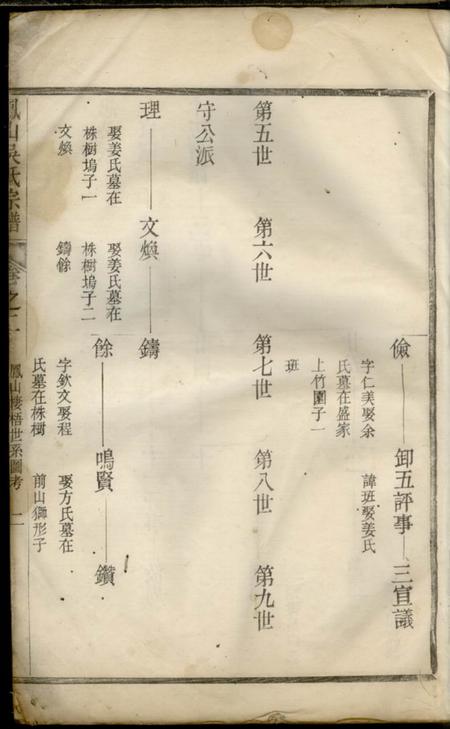 儉 卸五評事 三宣議
字仁美娶余
氏墓在盛家
上竹園子一
班
諱班娶姜氏
第五世 第六世 第七世 第八世 第九世
守公派
理 文煥 鑄
娶姜氏墓在
株樹塢子一
文煥
娶姜氏墓在
株樹塢子二
鑄餘
餘 鳴賢 鑽
字欽文娶程
氏墓在株樹
娶方氏墓在
前山獅形子
鳳山吳氏宗譜 卷之二 鳳山棲梧世系圖考 二